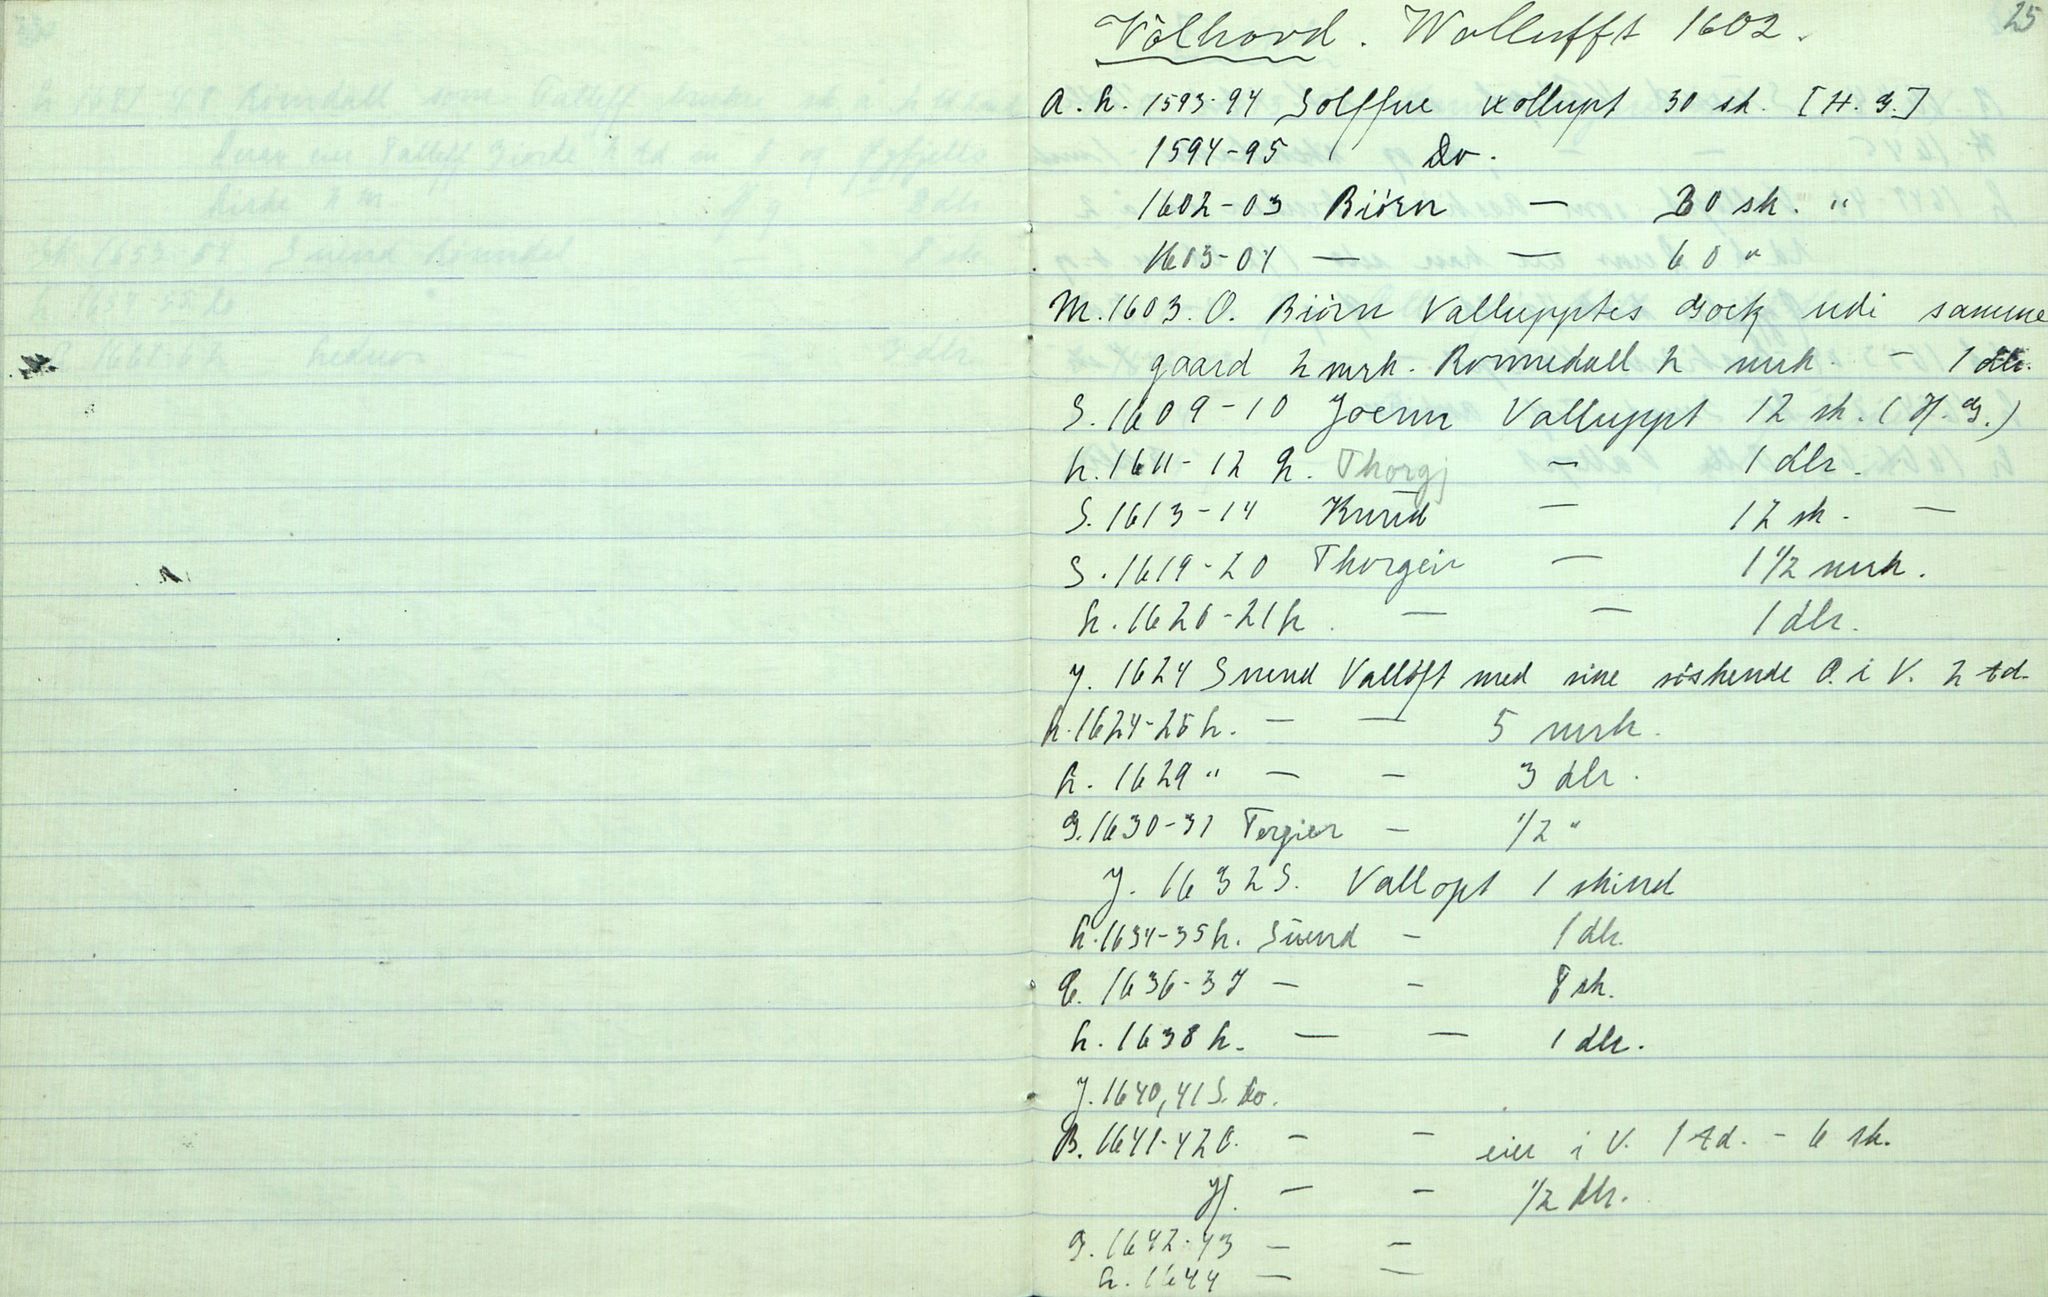 25
Vålhovd. Wallufft 1602.
A. h. 1593-94 Solffue Wollupt 30 sk. [H. G.]
1594-95 Do.
1602-03 Biørn — 30 sk. "
1603-04 — — 60 "
M. 1603. O. Biørn Vallupptes udi samme
gaard 2 mrk. Romedall 2 mrk. — 1 dlr.
S. 1609-10 Joenn Valluppt 12 sk. (H. G.)
h. 1611-12 h. Thorgj — 1 dlr.
S. 1613-14 Knud — 12 sk. —
S. 1619-20 Thorgeir — 1 1/2 mrk.
h. 1620-21 h. — — 1 dlr.
J. 1624 Svend Valløft med sine søskende O. i V. 2 td.
h. 1624-25 h. — — 5 mrk.
h. 1629 " — — 3 dlr.
G. 1630-31 Torgier — 1/2 "
J. 1632 S. Vallopt 1 skind
h. 1634-35 h. Suend — 1 dlr.
1636-37 — — 8 sk.
h. 1638 h. — — 1 dlr.
J. 1640, 41 S. Do.
B. 1641-42 O. — — eier i V. 1 td. - 6 sk.
H. — — 1/2 dlr.
G. 1642-43 — —
h. 1644 — —